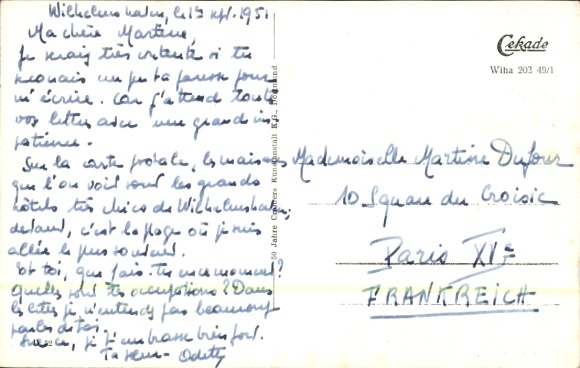 Wilhelmshaven, le 1er sept. 1951
Ma chère Martine,
Je serais très contente si tu
secouais un peu ta paresse pour
m'écrire. Car j'attend toutes
vos lettres avec une grande im
patience.
Sur la carte postale, les maisons
que l'on voit sont les grands
hôtels très chics de Wilhelmshaven;
devant, c'est la plage où je suis
allée le plus souvent.
Et toi, que fais-tu en ce moment?
Quelles sont tes occupations? Dans
les lettres je n'entends pas beaucoup
parler de toi.
je t'embrasse bien fort.
Ta sœur - Odette
Mademoiselle Martine Dufour
10 Square du Croisic
Paris XVe
FRANKREICH
Cekade
Wiha 203 49/1
50 Jahre Cramers Kunstanstalt K.G., Dortmund